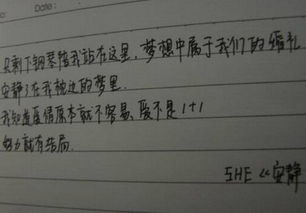 Date:
只剩下钢琴陪我站在这里，梦想中属于我们的婚礼
安静了在我独边的梦里.
我知道爱情原本就不容易、爱不是1+1
努力就有结局.
SHE 《安静